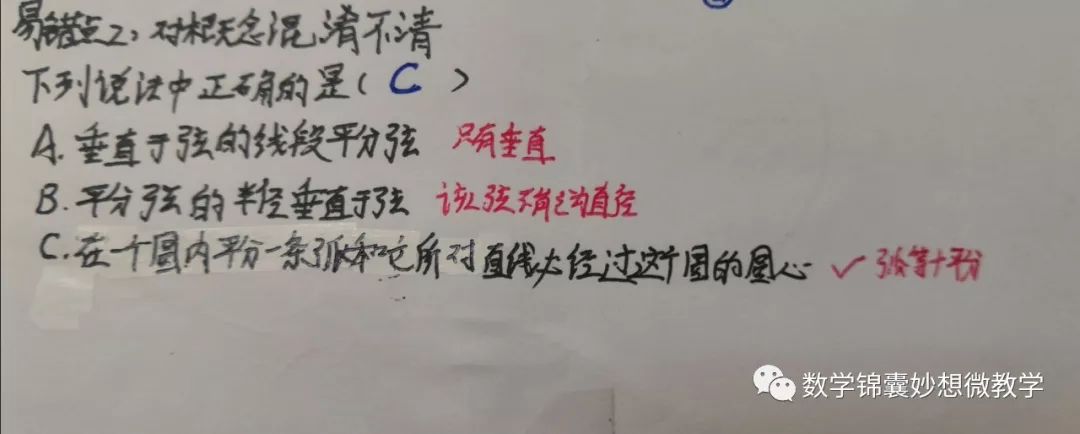 易错点2:对概念混淆不清
下列说法中正确的是( C )
A.垂直于弦的线段平分弦 只有垂直
B.平分弦的半径垂直于弦 该弦不能为直径
C.在一个圆内平分一条弧和它所对直线必经过这个圆的圆心 ✓ 弧等+平分
数学锦囊妙想微教学